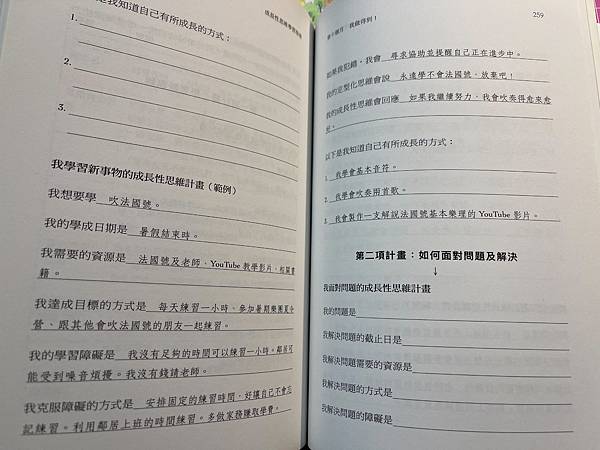 成長性思維學習指南
是我知道自己有所成長的方式：
1.
2.
3.
我學習新事物的成長性思維計畫（範例）
我想要學 吹法國號。
我的學成日期是 暑假結束時。
我需要的資源是 法國號及老師、YouTube 教學影片、相關書
籍。
我達成目標的方式是 每天練習一小時、參加暑期樂團夏令
營、跟其他會吹法國號的朋友一起練習。
我的學習障礙是 我沒有足夠的時間可以練習一小時。鄰居可
能受到噪音煩擾。我沒有錢請老師。
我克服障礙的方式是 安排固定的練習時間，好讓自己不會忘
記練習。利用鄰居上班的時間練習。多做家務賺取學費。
第十個月：我做得到！
259
如果我犯錯，我會 尋求協助並提醒自己正在進步中。
我的定型化思維會說 永遠學不會法國號，放棄吧！
我的成長性思維會回應 如果我繼續努力，我會吹奏得愈來愈
好。
以下是我知道自己有所成長的方式：
1. 我學會基本音符。
2. 我學會吹奏兩首歌。
3. 我會製作一支解說法國號基本樂理的 YouTube 影片。
第二項計畫：如何面對問題及解決
↓
我面對問題的成長性思維計畫
我的問題是
我解決問題的截止日是
我解決問題需要的資源是
我解決問題的方式是
我解決問題的障礙是